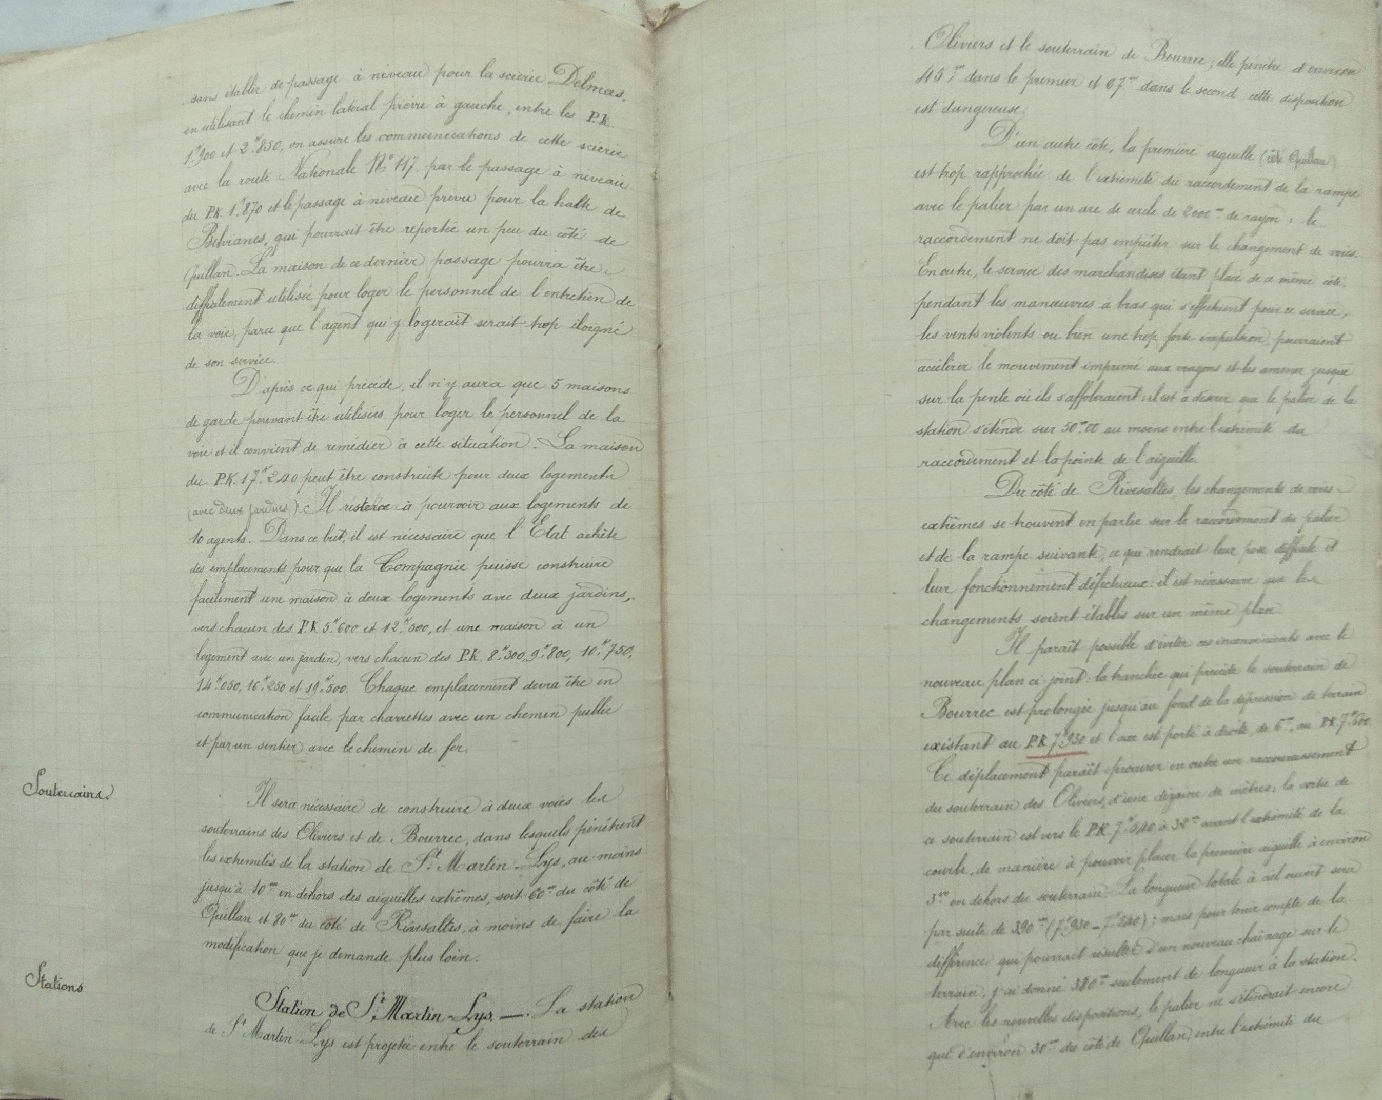 sans établir de passage à niveau pour la scierie Delmas.
en utilisant le chemin latéral prévu à gauche, entre les P.K.
1ᵏ900 et 2ᵏ850, on assure les communications de cette scierie
avec la route Nationale Nº 117 par le passage à niveau
du P.K. 1ᵏ870 et le passage à niveau prévu pour la halte de
Belvianes, qui pourrait être reportée un peu du côté de
Quillan. La maison de ce dernier passage pourra être
difficilement utilisée pour loger le personnel de l'entretien de
la voie, parce que l'agent qui y logerait serait trop éloigné
de son service.
D'après ce qui précède, il n'y aura que 5 maisons
de garde pouvant être utilisées pour loger le personnel de la
voie et il convient de remédier à cette situation. La maison
du P.K. 17ᵏ240 peut être construite pour deux logements
(avec deux jardins). Il restera à pourvoir aux logements de
10 agents. Dans ce but, il est nécessaire que l'État achète
des emplacements pour que la Compagnie puisse construire
facilement une maison à deux logements avec deux jardins,
vers chacun des P.K 5ᵏ600 et 12ᵏ500, et une maison à un
logement avec un jardin, vers chacun des P.K. 8ᵏ300, 9ᵏ800, 10ᵏ750,
14ᵏ050, 16ᵏ250 et 19ᵏ500. Chaque emplacement devra être en
communication facile par charrettes avec un chemin public
et par un sentier avec le chemin de fer.
Souterrains.
Il sera nécessaire de construire à deux voies les
souterrains des Oliviers et de Bourrec, dans lesquels pénètrent
les extrémités de la station de Sᵗ Martin-Lys, au moins
jusqu'à 10ᵐ en dehors des aiguilles extrêmes, soit 60ᵐ du côté de
Quillan et 80ᵐ du côté de Rivesaltes, à moins de faire la
modification que je demande plus loin.
Stations
Station de Sᵗ Martin-Lys. — La station
de Sᵗ Martin-Lys est projetée entre le souterrain des
Oliviers et le souterrain de Bourrec; elle pénètre d'environ
45ᵐ dans le premier et 67ᵐ dans le second, cette disposition
est dangereuse.
D'un autre côté, la première aiguille (côté Quillan)
est trop rapprochée de l'extrémité du raccordement de la rampe
avec le palier par un arc de cercle de 2000ᵐ de rayon; le
raccordement ne doit pas empiéter sur le changement de voies.
En outre, le service des marchandises étant placé de ce même côté,
pendant les manœuvres à bras qui s'effectuent pour ce service,
les vents violents ou bien une trop forte impulsion pourraient
accélérer le mouvement imprimé aux wagons et les amener jusque
sur la pente où ils s'affoleraient; il est à désirer que le palier de la
station s'étende sur 50ᵐ00 au moins entre l'extrémité du
raccordement et la pointe de l'aiguille.
Du côté de Rivesaltes, les changements de voies
extrêmes se trouvent en partie sur le raccordement du palier
et de la rampe suivante, ce qui rendrait leur pose difficile et
leur fonctionnement défectueux: il est nécessaire que les
changements soient établis sur un même plan.
Il paraît possible d'éviter ces inconvénients avec le
nouveau plan ci-joint: la tranchée qui précède le souterrain de
Bourrec est prolongée jusqu'au fond de la dépression de terrain
existant au P.K 7ᵏ930 et l'axe est porté à droite, de 6ᵐ, au P.K 7ᵏ600.
Ce déplacement paraît procurer en outre un raccourcissement
du souterrain des Oliviers, d'une dizaine de mètres; la sortie de
ce souterrain est vers le P.K. 7ᵏ540, à 32ᵐ avant l'extrémité de la
courbe, de manière à pouvoir placer la première aiguille à environ
3ᵐ en dehors du souterrain. La longueur totale à ciel ouvert sera
par suite de 390ᵐ (7ᵏ930 - 7ᵏ540); mais pour tenir compte de la
différence qui pourrait résulter d'un nouveau chaînage sur le
terrain, j'ai donné 380ᵐ seulement de longueur à la station.
Avec les nouvelles dispositions, le palier ne s'étendrait encore
que d'environ 30ᵐ du côté de Quillan, entre l'extrémité du